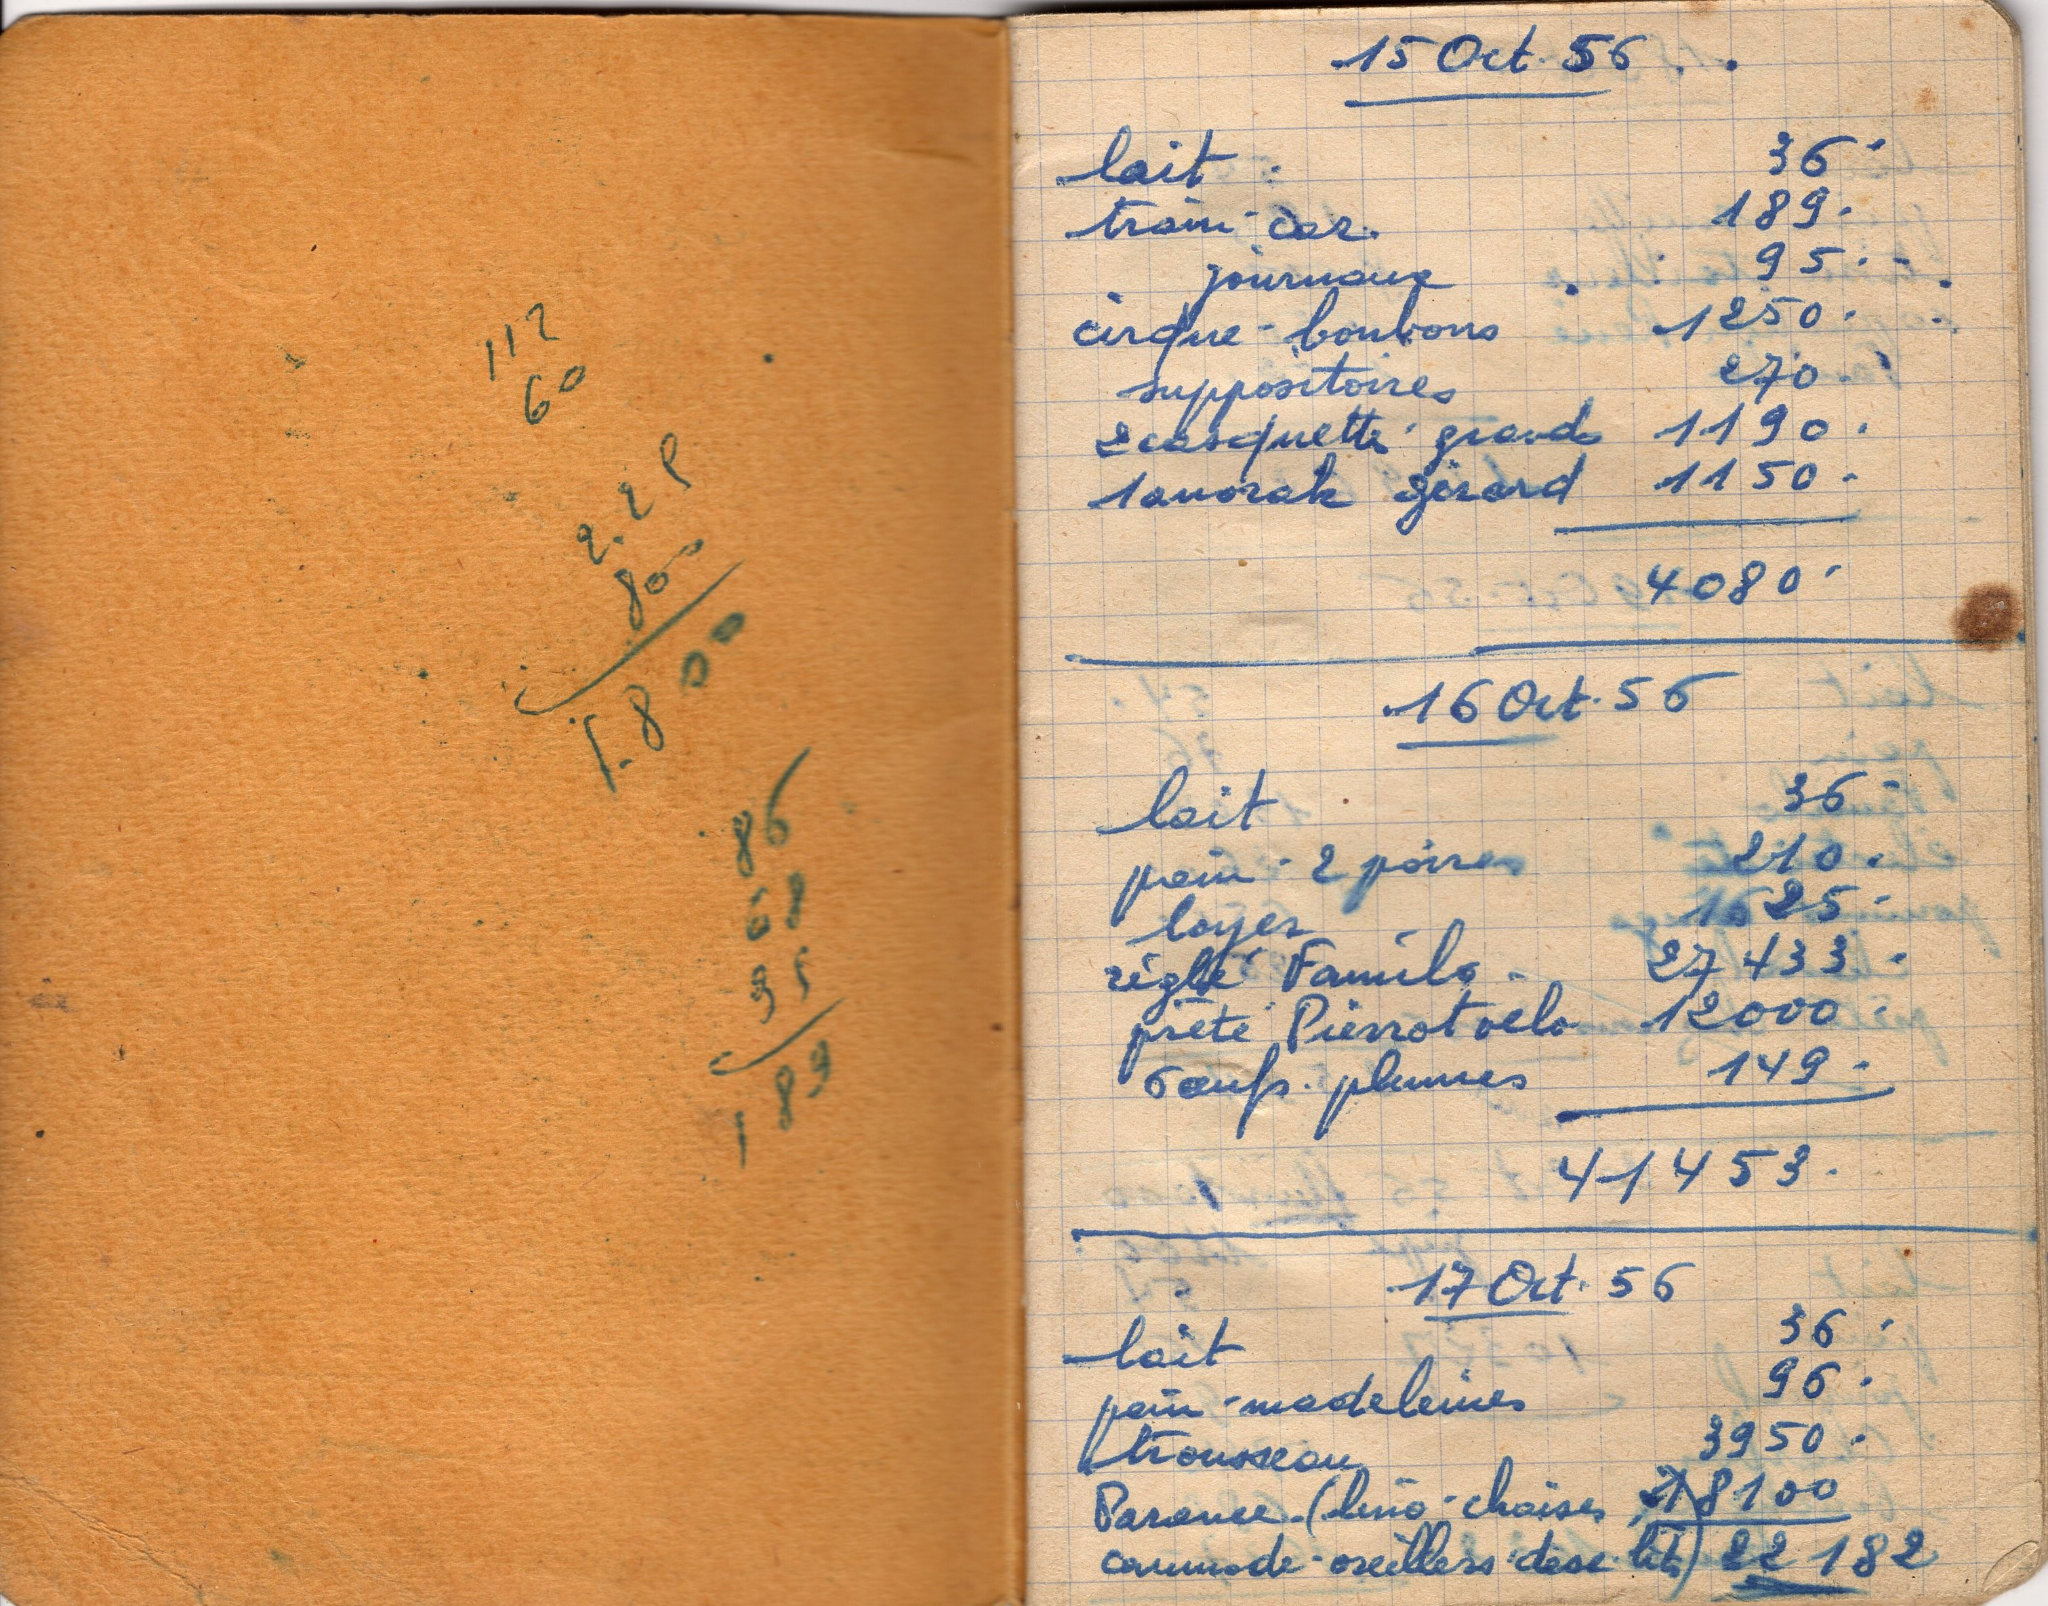 112
60
2.25
800
1.800
86
68
35
189
15 Oct. 56.
lait 36
train-car. 189.
journaux 95.
cirque-bonbons 1250.
suppositoires 270.
2 casquette grands 1190.
1 anorak gérard 1150.
4080
16 Oct. 56
lait 36
pain-2 poires 210.
loyer 1625
réglé Famila 27433.
prêté Pierrot velo 12000.
6 œufs. plumes 149.
41453.
17 Oct. 56
lait 36
pain-madeleines 96.
trousseau 3950.
(lino-chaises 18100
commode-oreillers lit) 22182